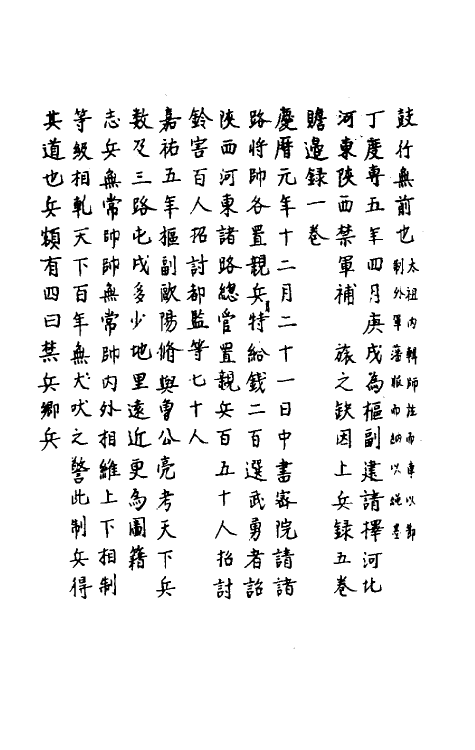 鼓行無前也太祖內輯師法而車以節
制外軍藩服而納以繩墨
丁度専五年四月庚戌為樞副建諸擇河北
河東陝西禁軍補 族之缺因上兵録五卷
贍邉録一卷
慶曆元年十二月二十一日中書宻院請諸
路將帥各置親兵特給錢二百選武勇者詔
陜西河東諸路總管置親兵百五十人招討
鈐害百人招討都監等七十人
嘉祐五年樞副歐陽脩與曾公亮考天下兵
数及三路屯戍多少地里遠近更為圖籍
志兵無常帥帥無常帥內外相維上下相制
等級相軋天下百年無犬吠之警此制兵得
其道也兵額有四曰禁兵鄉兵